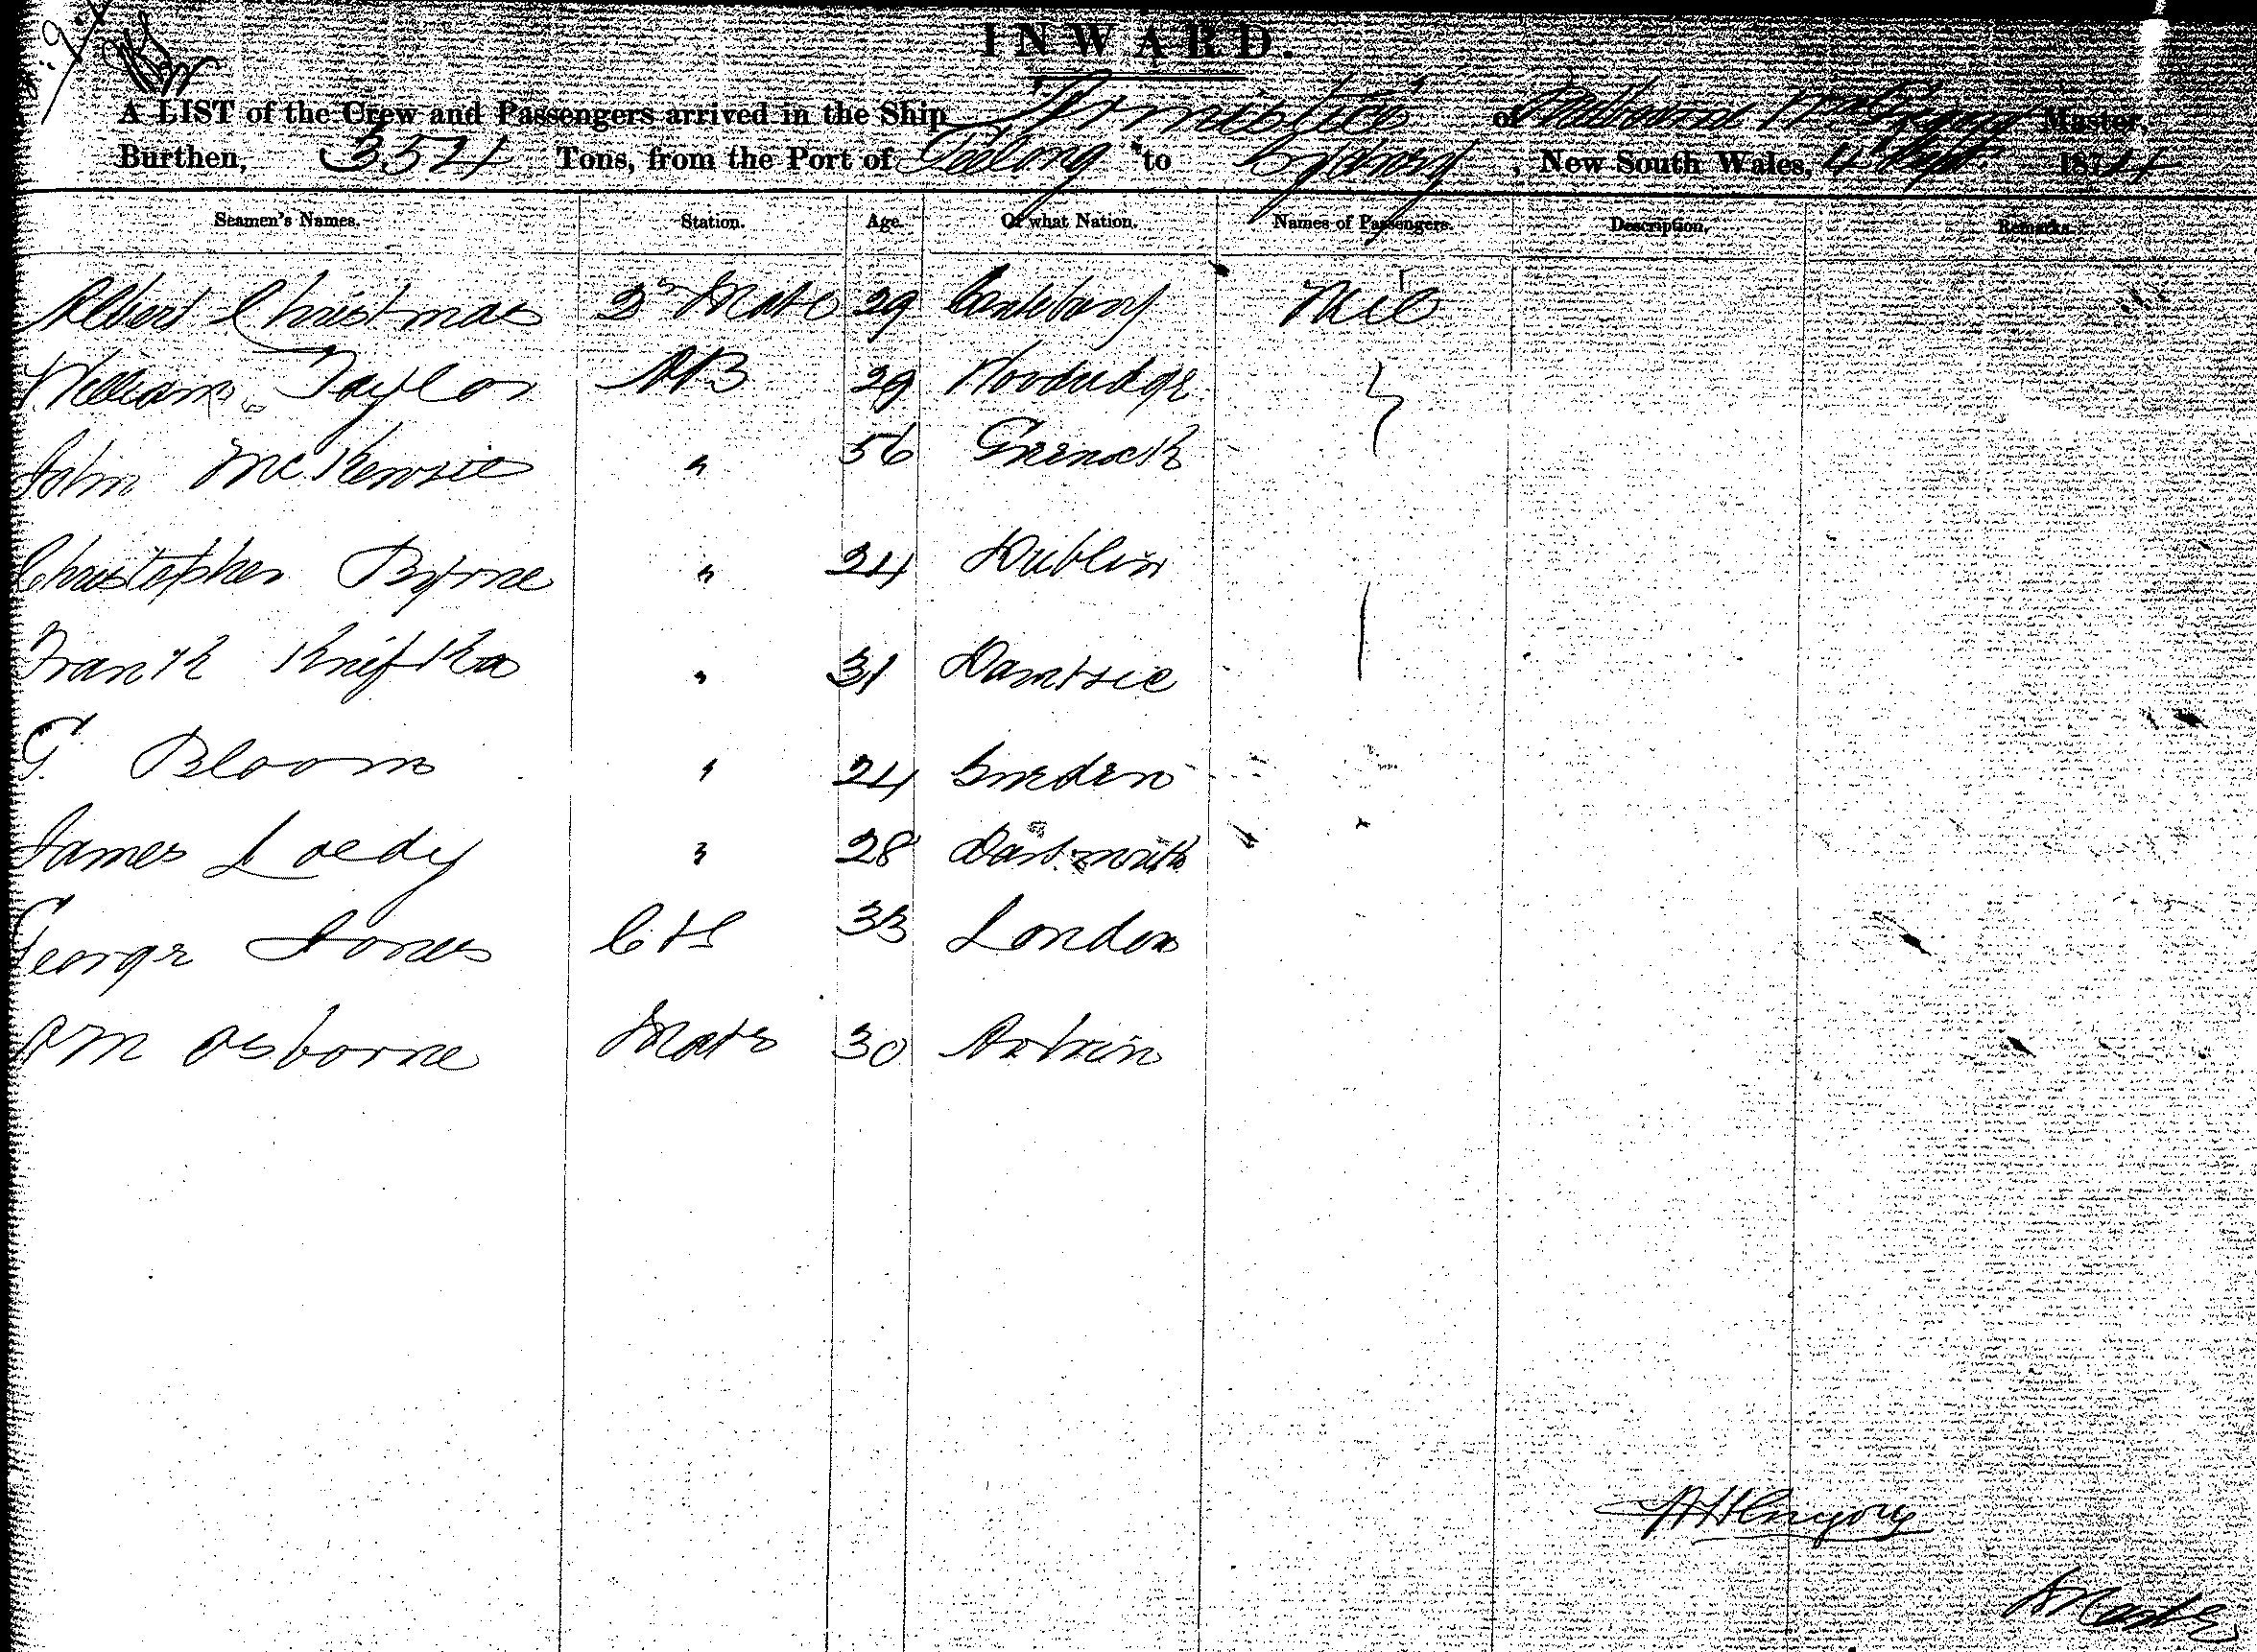 INWARD.
A LIST of the Crew and Passengers arrived in the Ship Armistice of Melbourne Master,
Burthen, 354 Tons, from the Port of Geelong to Sydney, New South Wales, 4 Sept 1874
Seamen's Names. Station. Age. Of what Nation. Names of Passengers. Description. Remarks.
Albert Christmas 2nd Mate 29 Canterbury Nil
William Taylor AB 29 Woodbridge
John McKenzie " 56 Greenock
Christopher Byrne " 24 Dublin
Frank Knifka " 31 Dantsic
G. Bloom " 24 Sweden
James Loedy " 28 Dartmouth
George Jones C & S 33 London
A M Osborne Mate 30 Antrim
Master